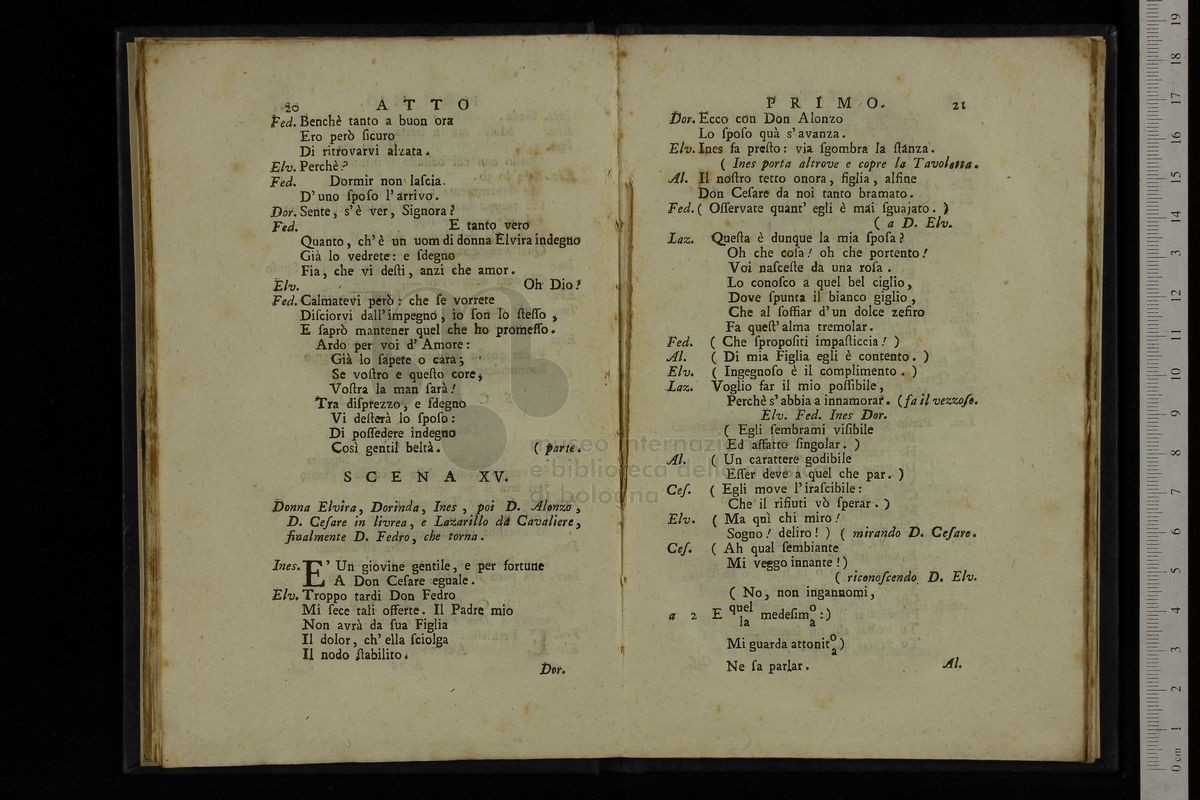 20 ATTO
Fed. Benchè tanto a buon ora
Ero però ſicuro
Di ritrovarvi alzata.
Elv. Perchè?
Fed. Dormir non laſcia.
D'uno ſpoſo l'arrivo.
Dor. Sente, s'è ver, Signora?
Fed. E tanto vero
Quanto, ch'è un uom di donna Elvira indegno
Già lo vedrete: e ſdegno
Fia, che vi deſti, anzi che amor.
Elv. Oh Dio!
Fed. Calmatevi però: che ſe vorrete
Diſciorvi dall'impegno, io ſon lo ſteſſo,
E ſaprò mantener quel che ho promeſſo.
Ardo per voi d'Amore:
Già lo ſapete o cara;
Se voſtro e queſto core,
Voſtra la man ſarà!
Tra diſprezzo, e ſdegno
Vi deſterà lo ſpoſo:
Di poſſedere indegno
Così gentil beltà. ( parte.
SCENA XV.
Donna Elvira, Dorinda, Ines, poi D. Alonzo,
D. Ceſare in livrea, e Lazarillo da Cavaliere,
finalmente D. Fedro, che torna.
Ines. E' Un giovine gentile, e per fortune
A Don Ceſare eguale.
Elv. Troppo tardi Don Fedro
Mi fece tali offerte. Il Padre mio
Non avrà da ſua Figlia
Il dolor, ch'ella ſciolga
Il nodo ſtabilito.
Dor.
PRIMO. 21
Dor. Ecco con Don Alonzo
Lo ſpoſo quà s'avanza.
Elv. Ines fa preſto: via ſgombra la ſtanza.
( Ines porta altrove e copre la Tavoletta.
Al. Il noſtro tetto onora, figlia, alfine
Don Ceſare da noi tanto bramato.
Fed. ( Oſſervate quant' egli è mai ſguajato. )
( a D. Elv.
Laz. Queſta è dunque la mia ſpoſa?
Oh che coſa! oh che portento!
Voi naſceſte da una roſa.
Lo conoſco a quel bel ciglio,
Dove ſpunta il bianco giglio,
Che al ſoffiar d'un dolce zefiro
Fa queſt'alma tremolar.
Fed. ( Che ſpropoſiti impaſticcia! )
Al. ( Di mia Figlia egli è contento. )
Elv. ( Ingegnoſo è il complimento. )
Laz. Voglio far il mio poſſibile,
Perchè s'abbia a innamorar. (fa il vezzoſo.
Elv. Fed. Ines Dor.
( Egli ſembrami viſibile
Ed affatto ſingolar. )
Al. ( Un carattere godibile
Eſſer deve a quel che par. )
Ceſ. ( Egli move l'iraſcibile:
Che il rifiuti vò ſperar. )
Elv. ( Ma quì chi miro!
Sogno! deliro! ) ( mirando D. Ceſare.
Ceſ. ( Ah qual ſembiante
Mi veggo innante!)
( riconoſcendo D. Elv.
( No, non ingannomi,
a 2 E quel/la medeſimo/a:)
Mi guarda attonito/a)
Ne ſa parlar. Al.
museo internazi
e biblioteca della
di bologna
0 cm 1 2 3 4 5 6 7 8 9 10 11 12 13 14 15 16 17 18 19